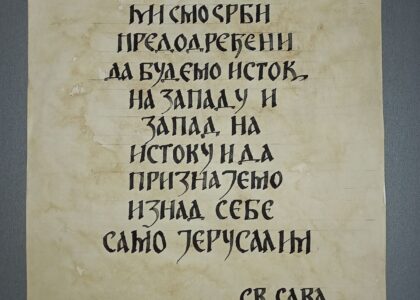 МИ СМО СРБИ
ПРЕДОДРЕЂЕНИ
ДА БУДЕМО ИСТОК,
НА ЗАПАДУ И
ЗАПАД, НА
ИСТОКУ И ДА
ПРИЗНАЈЕМО
ИЗНАД СЕБЕ
САМО ЈЕРУСАЛИМ
СВ. САВА